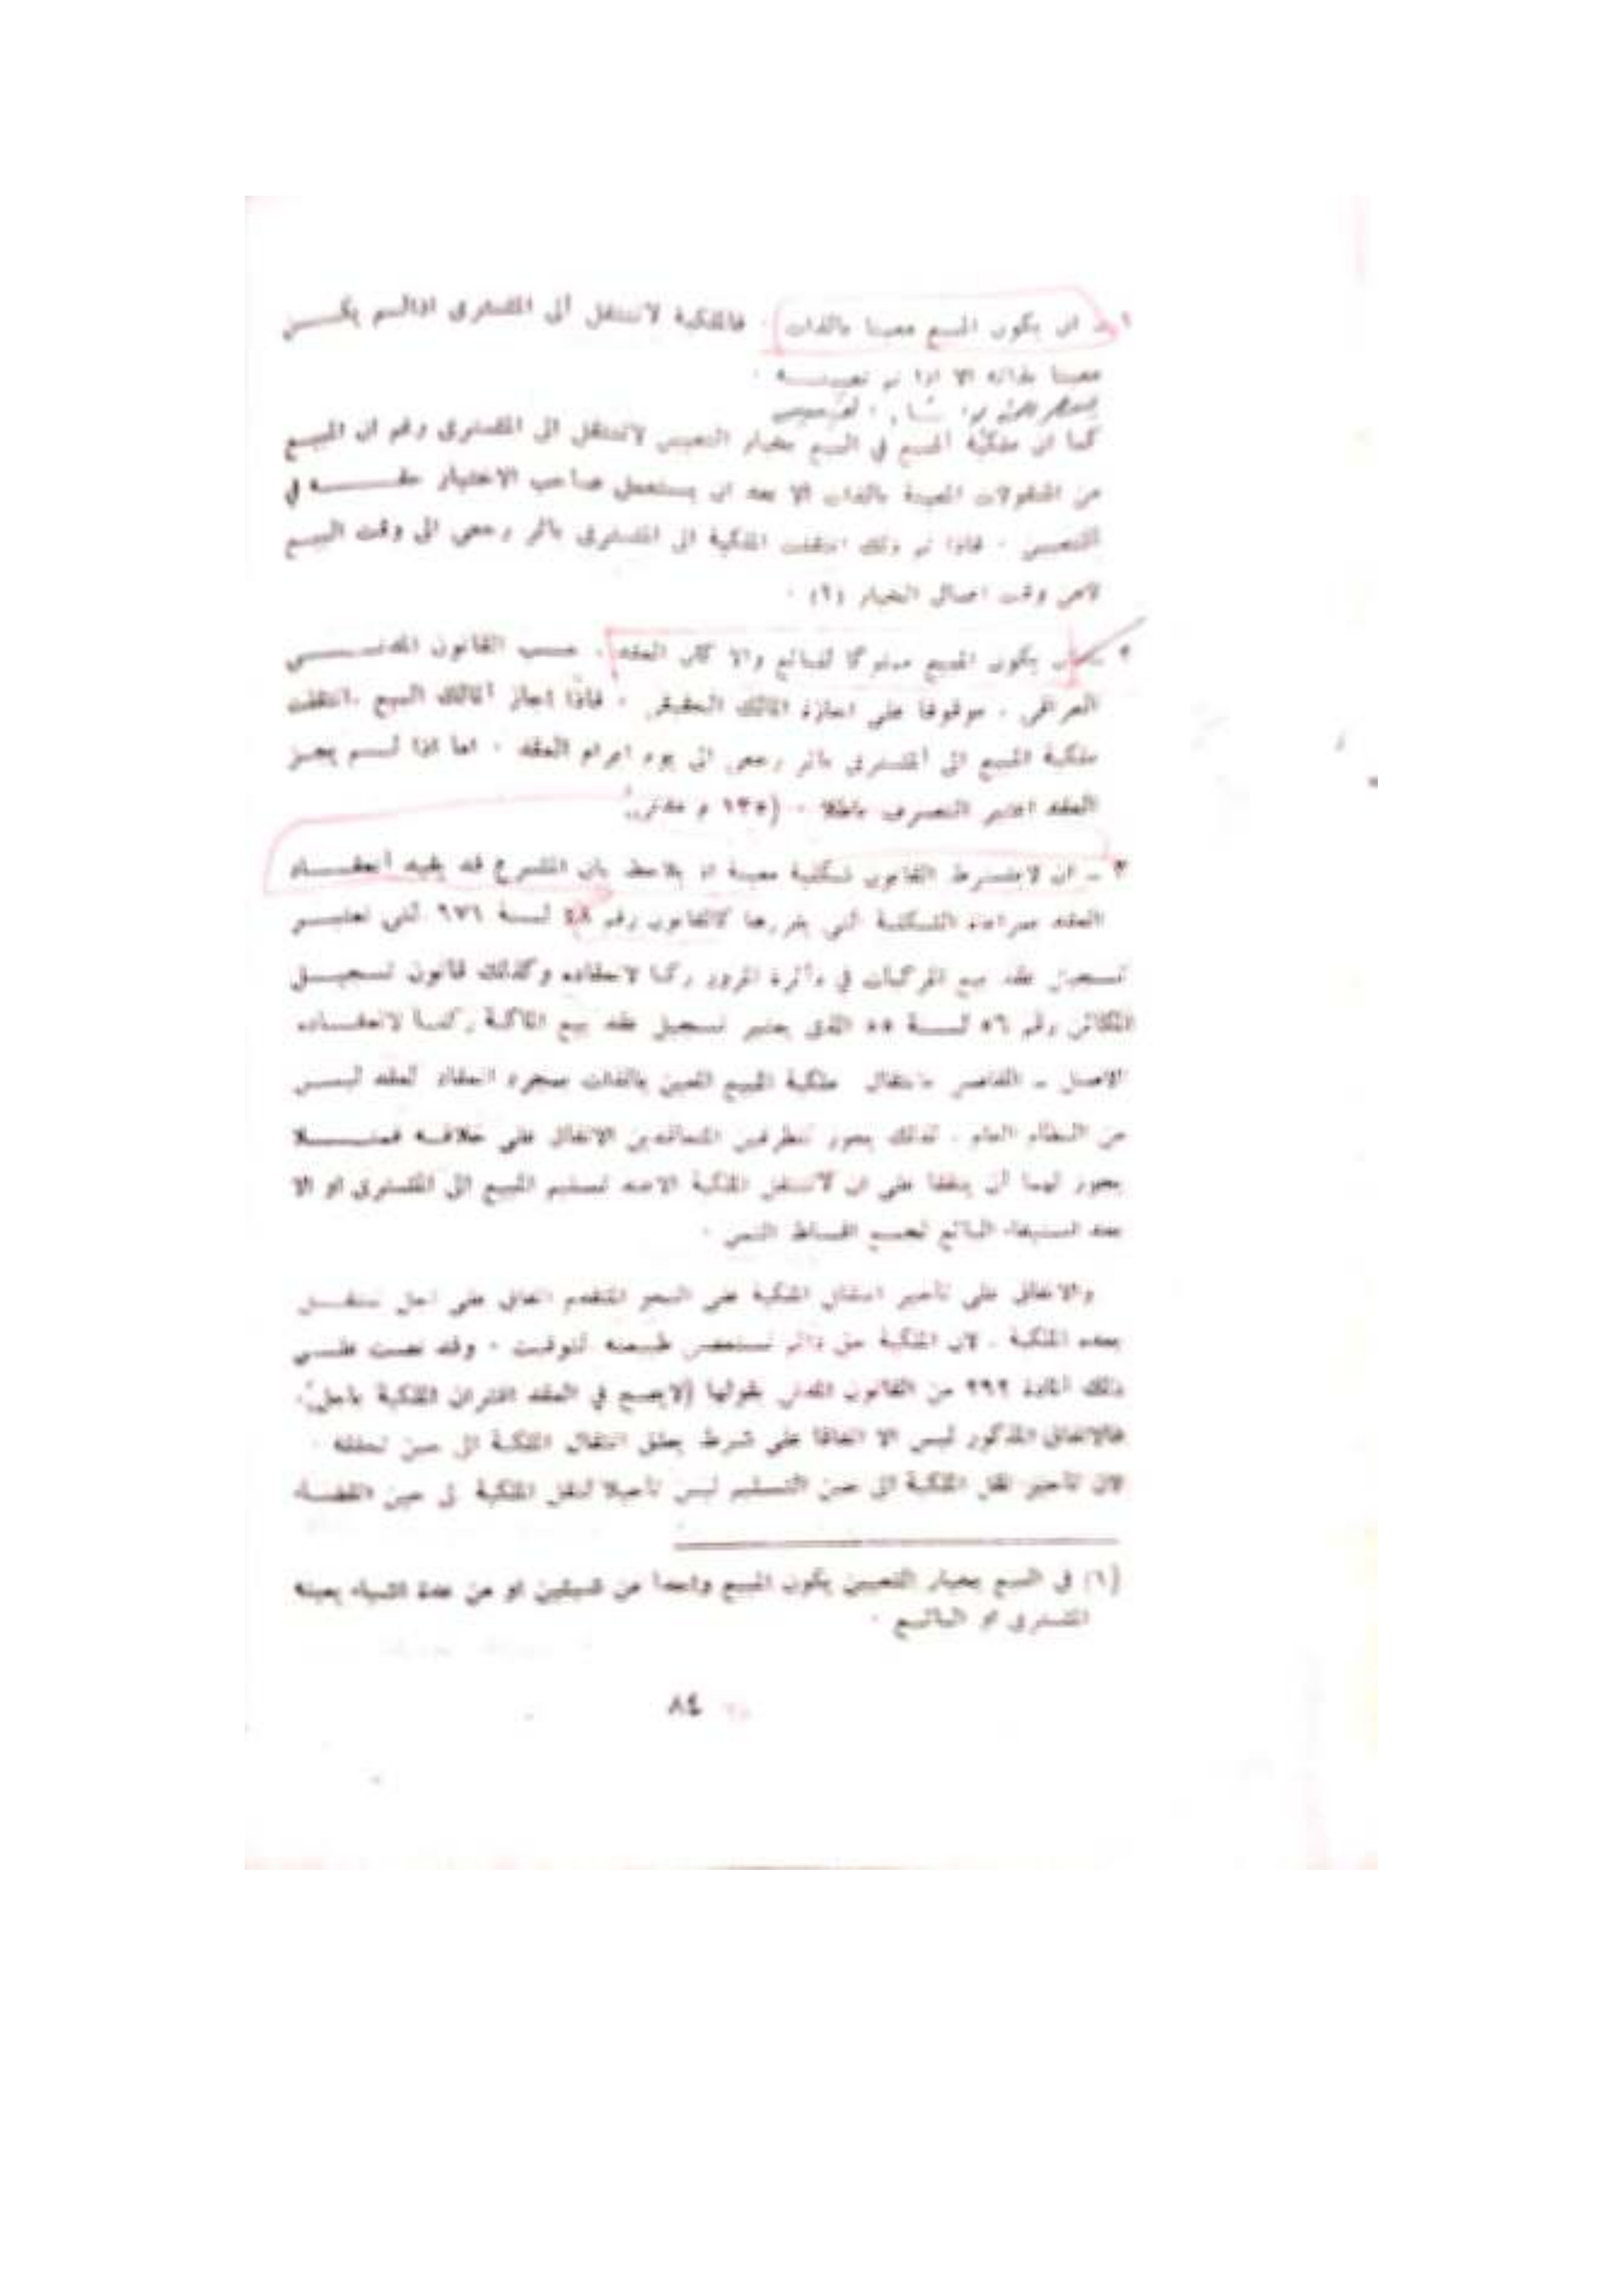 ١ ـ ان يكون المبيع معينا بالذات . فالملكية لاتنتقل الى المشترى اذالم يكن
معينا بذاته الا اذا تم تعيينه .
كما ان ملكية المبيع في البيع بخيار التعيين لاتنتقل الى المشترى رغم ان المبيع
من المنقولات المعينة بالذات الا بعد ان يستعمل صاحب الاختيار حقه في
التعيين . فاذا تم ذلك انتقلت الملكية الى المشترى باثر رجعي الى وقت البيع
لامن وقت اعمال الخيار (١) .
٢ ـ ان يكون المبيع مملوكا للبائع والا كان العقد ، حسب القانون المدني
العراقي ، موقوفا على اجازة المالك الحقيقي . فاذا اجاز المالك البيع ، انتقلت
ملكية المبيع الى المشترى باثر رجعي الى يوم ابرام العقد . اما اذا لم يجز
العقد اعتبر التصرف باطلا . (١٣٥ م مدني)
٣ ـ ان لايشترط القانون شكلية معينة اذ يلاحظ بان المشرع قد يقيد انعقاد
العقد بمراعاة الشكلية التي يقررها كالقانون رقم ٤٨ لسنة ٩٧١ التي تعتبر
تسجيل عقد بيع المركبات في دائرة المرور ركنا لانعقاده وكذلك قانون تسجيل
المكائن رقم ٥٦ لسنة ٥٥ الذى يعتبر تسجيل عقد بيع الماكنة ركنا لانعقاده
الاصل ـ القاضي بانتقال ملكية المبيع المعين بالذات بمجرد انعقاد العقد ليس
من النظام العام . لذلك يجوز للطرفين المتعاقدين الاتفاق على خلافه فمثلا
يجوز لهما أن يتفقا على ان لاتنتقل الملكية الابعد تسليم المبيع الى المشترى او الا
بعد استيفاء البائع لجميع اقساط الثمن .
والاتفاق على تأخير انتقال الملكية على النحو المتقدم اتفاق على اجل تنتقل
بعده الملكية . لان الملكية حق دائم تستعصي طبيعته التوقيت . وقد نصت على
ذلك المادة ٢٩٢ من القانون المدني بقولها (لايصح في العقد اقتران الملكية بأجل).
فالاتفاق المذكور ليس الا اتفاقا على شرط يعلق انتقال الملكية الى حين تحققه .
لان تأخير نقل الملكية الى حين التسليم ليس تأجيلا لنقل الملكية الى حين انقضاء
(١) في البيع بخيار التعيين يكون المبيع واحدا من شيئين او من عدة اشياء يعينه
المشترى او البائع .
٨٤